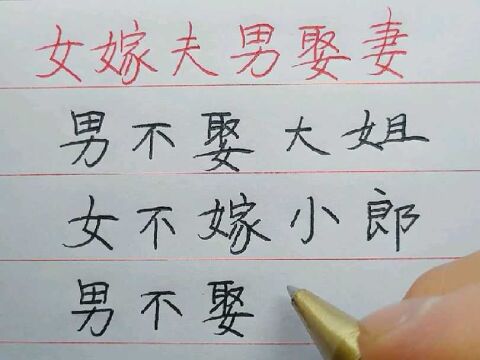 女嫁夫男娶妻
男不娶大姐
女不嫁小郎
男不娶